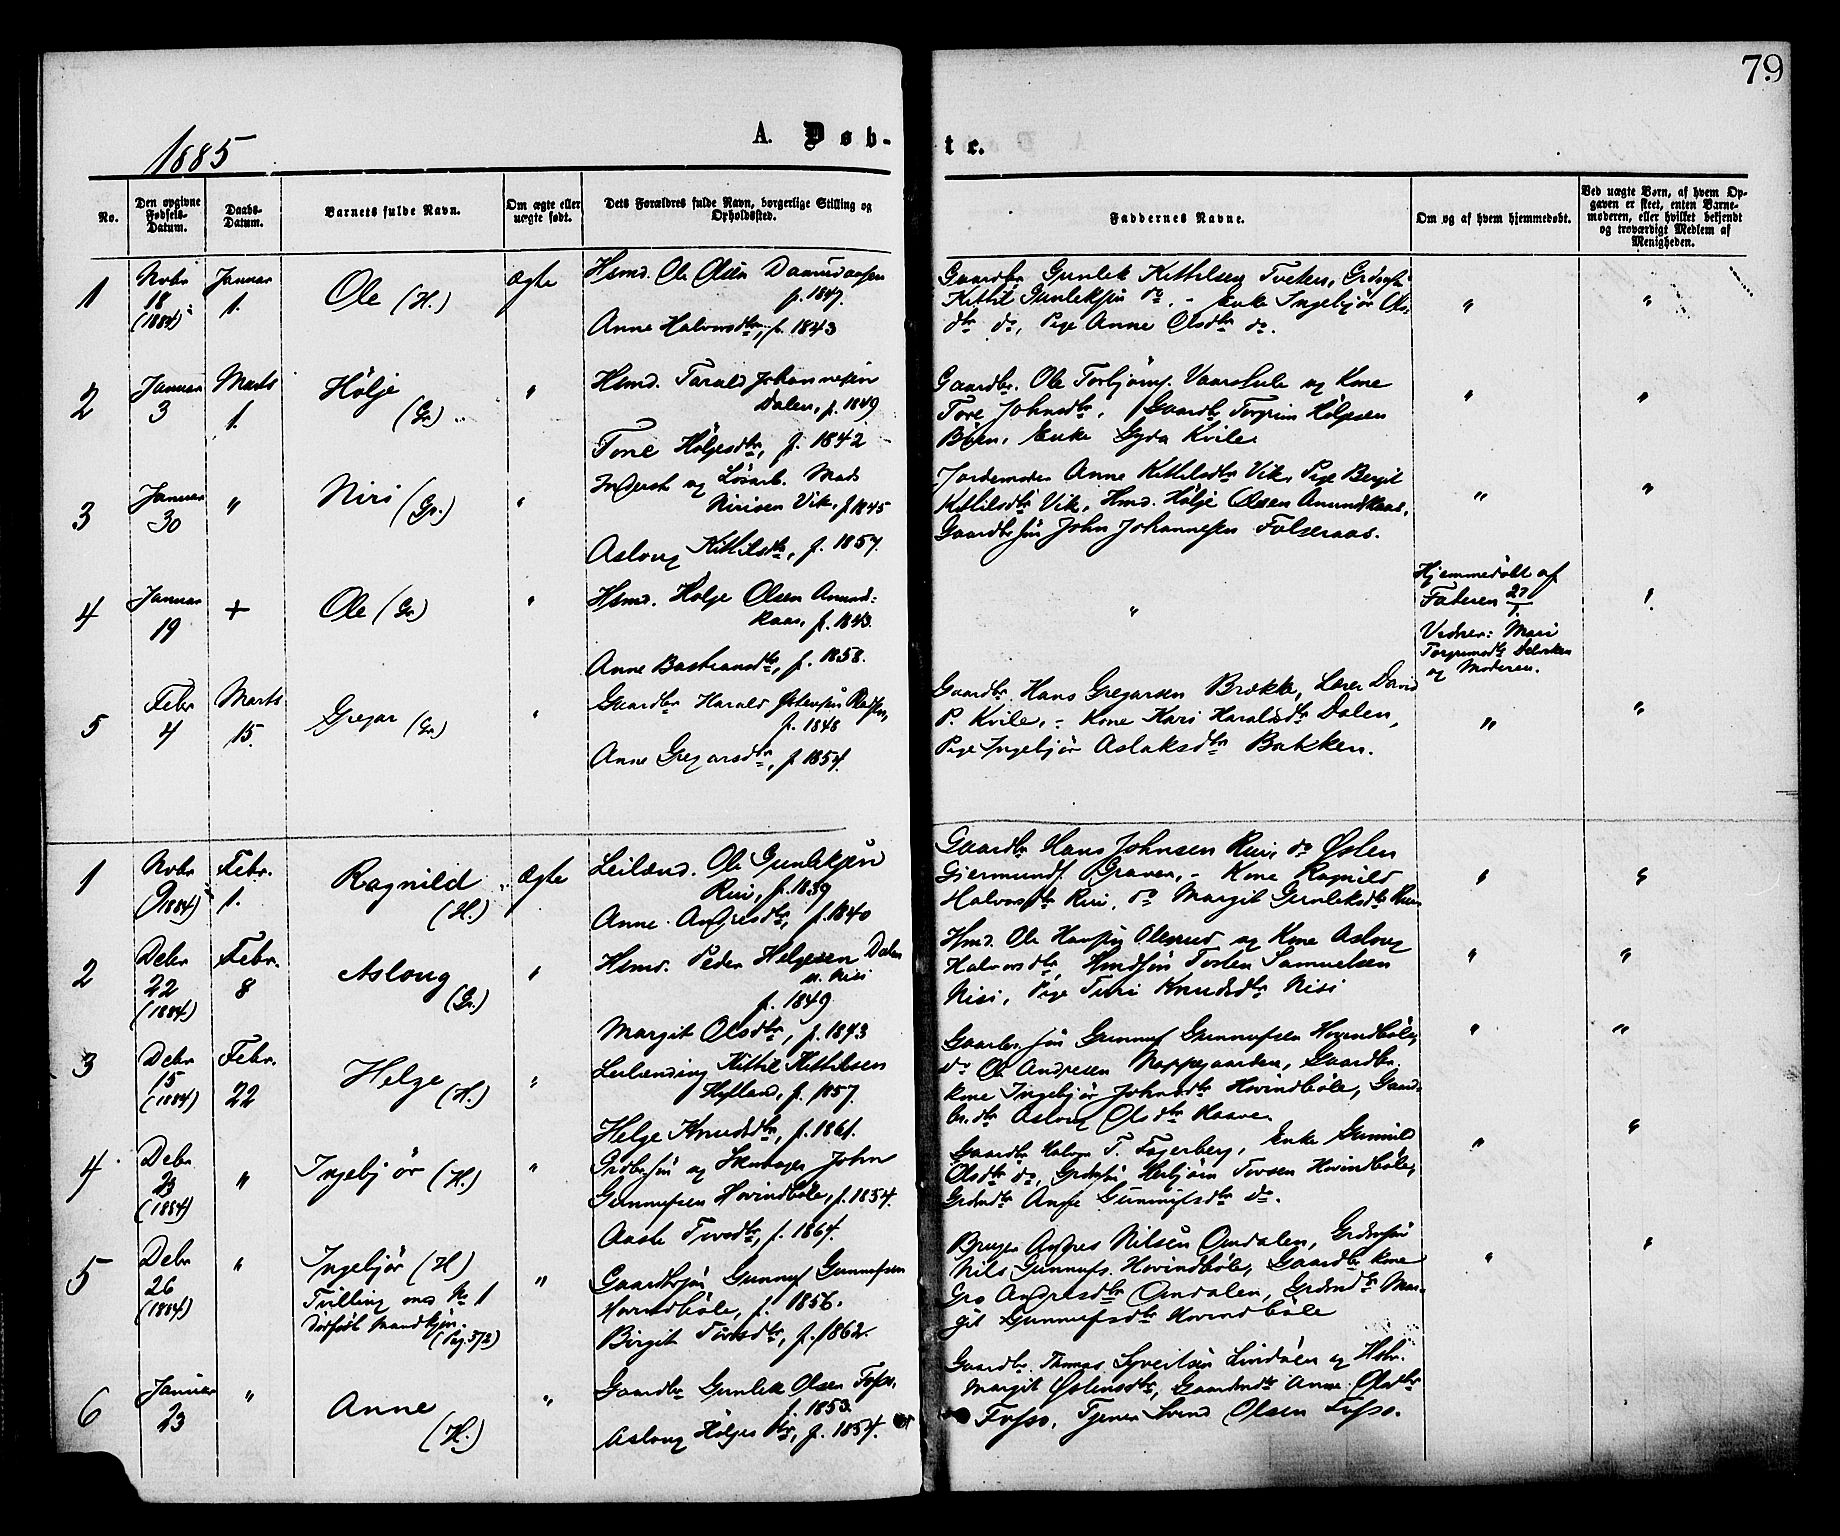 79
1885
A. Døb-
te.
No.
Den opgivne Fødsels-Datum.
Daabs-Datum.
Barnets fulde Navn.
Om ægte eller uægte født.
Dets Forældres fulde Navn, borgerlige Stilling og Opholdssted.
Faddernes Navne.
Om og af hvem hjemmedøbt.
Ved uægte Børn, af hvem Op-
gaven er skeet, enten Barne-
moderen, eller hvilket bekjendt
og troværdigt Medlem af
Menigheden.
1
Novbr
18
(1884)
Januar
1.
Ole (H.)
Ægte
Hsmd. Ole Olsen
f. 1847.
Anne Halvorsdtr, f. 1843
Gaardbr Gunlek Kittilsen Tveten, Grdmsøn
Kittil Gunleksøn do. - Enke Ingebjør Ols-
dtr do, Pige Anne Olsdtr do.
"
"
2
Januar
3
Marts
1.
Hølje
(Gr.)
"
Hsmd. Tarald Johannesen
Dalen, f. 1849
Tone Høljesdtr, f. 1842
Gaardbr. Ole Torbjørns. og Kone
Tore Johnsdtr, Gaardb Torgrim Høljesen
Bøen, Enke Gyda Kvile.
"
"
3
Januar
30
"
Niri (Gr.)
"
Inderst og Løsarb. Mads
Nirisen Vik, f. 1845
Asloug Kittilsdtr, f. 1857.
Jordemoder Anne Kittilsdtr Vik, Pige Bergit
Kittilsdtr Vik, Hmd. Hølje Olsen Amundkaas,
Gaardbrsøn John Johannesen Folseraas.
"
"
4
Januar
19
+
Ole (Gr.)
"
Hsmd. Hølje Olsen Amund-
kaas, f. 1843.
Anne Bastiansdtr, f. 1858.
"
Hjemmedøbt af
Faderen 27/1.
Vidner: Mari
Torgrimsdtr
og Moderen.
"
5
Febr
4
Marts
15.
Gregar (Gr.)
"
Gaardbr Harald
f. 1848
Anne Gregarsdtr, f. 1854.
Gaardbr. Hans Gregarsen Brække, Lærer David
P. Kvile, - Kone Kari Haraldsdtr Dalen,
Pige Ingebjør Aslaksdtr Bakken.
"
"
1
Novbr
9 (1884)
Febr.
1.
Ragnild
(H.)
Ægte
Leilænd. Ole Gunleksøn
Rui, f. 1839
Anne Andresdtr, f. 1840
Gaardbr Hans Johnsen Rui, do Østen
Gjermunds. Graver, - Kone Ragnild
Halvorsdtr Rui, do Margit Gunleksdtr Rui
"
"
2
Debr
22
(1884)
Febr.
8
Asloug
(Gr.)
"
Hsmd. Peder Helgesen Dalen
u. Nisi
f. 1849
Margit Olsdtr, f. 1843
Hmd. Ole Hansen og Kone Asloug
Halvorsdtr, Hmdsøn Tosten Samuelsen
Nisi, Pige Turi Knudsdtr Nisi
"
"
3
Debr
15
(1884)
Febr.
22
Helge
(H.)
"
Leilænding Kittil Kittilsen
Høfland, f. 1857.
Helge Knudsdtr, f. 1861.
Gaardbr søn Gunnuf Gunnufsen Hovindbøle,
do Ole Andresen Noppegaarden, Gaardbr
kone Ingebjør Johnsdtr Hovindbøle, Gaard-
br.dtr Asloug Olsdtr Haave.
"
"
4
Debr
23
(1884)
"
Ingebjør (H.)
"
Grdbr søn og Skomager John
Gunnufsen Hovindbøle, f. 1854.
Aasle Tovsdtr, f. 1864.
Gaardbr Halvor T. Fagerberg, Enke Gunnild
Olsdtr do, Grdmsøn Herbjørn Tovsen Hovindbøle,
Grdmdtr Anne Gunnufsdtr do.
"
"
5
Debr
26
(1884)
"
Ingebjør (H)
Tvilling med No 1
dødfødt Mandkjøn.
(Pag. 372)
"
Gaardbrsøn Gunnuf Gunnufsen
Hovindbøle, f. 1856.
Birgit Tovsdtr, f. 1862.
Bruger Andres Nilsen Omdalen, Grdmsøn
Nils Gunnufs. Hovindbøle, Gaardbr kone
Gro Andresdtr Omdalen, Grdmdtr Mar-
git Gunnufsdtr Hovindbøle
"
"
6
Januar
23
"
Anne
(H.)
"
Gaardbr Gunlek Olsen Fosso,
f. 1853.
Asloug Høljesdtr, f. 1854.
Gaardbr. Thomas Syvertsen Lindøen og Hstr.
Margit Østensdtr, Gaardmdtr Anne Olsdtr
Fosso, Tjener Svend Olsen Fosso.